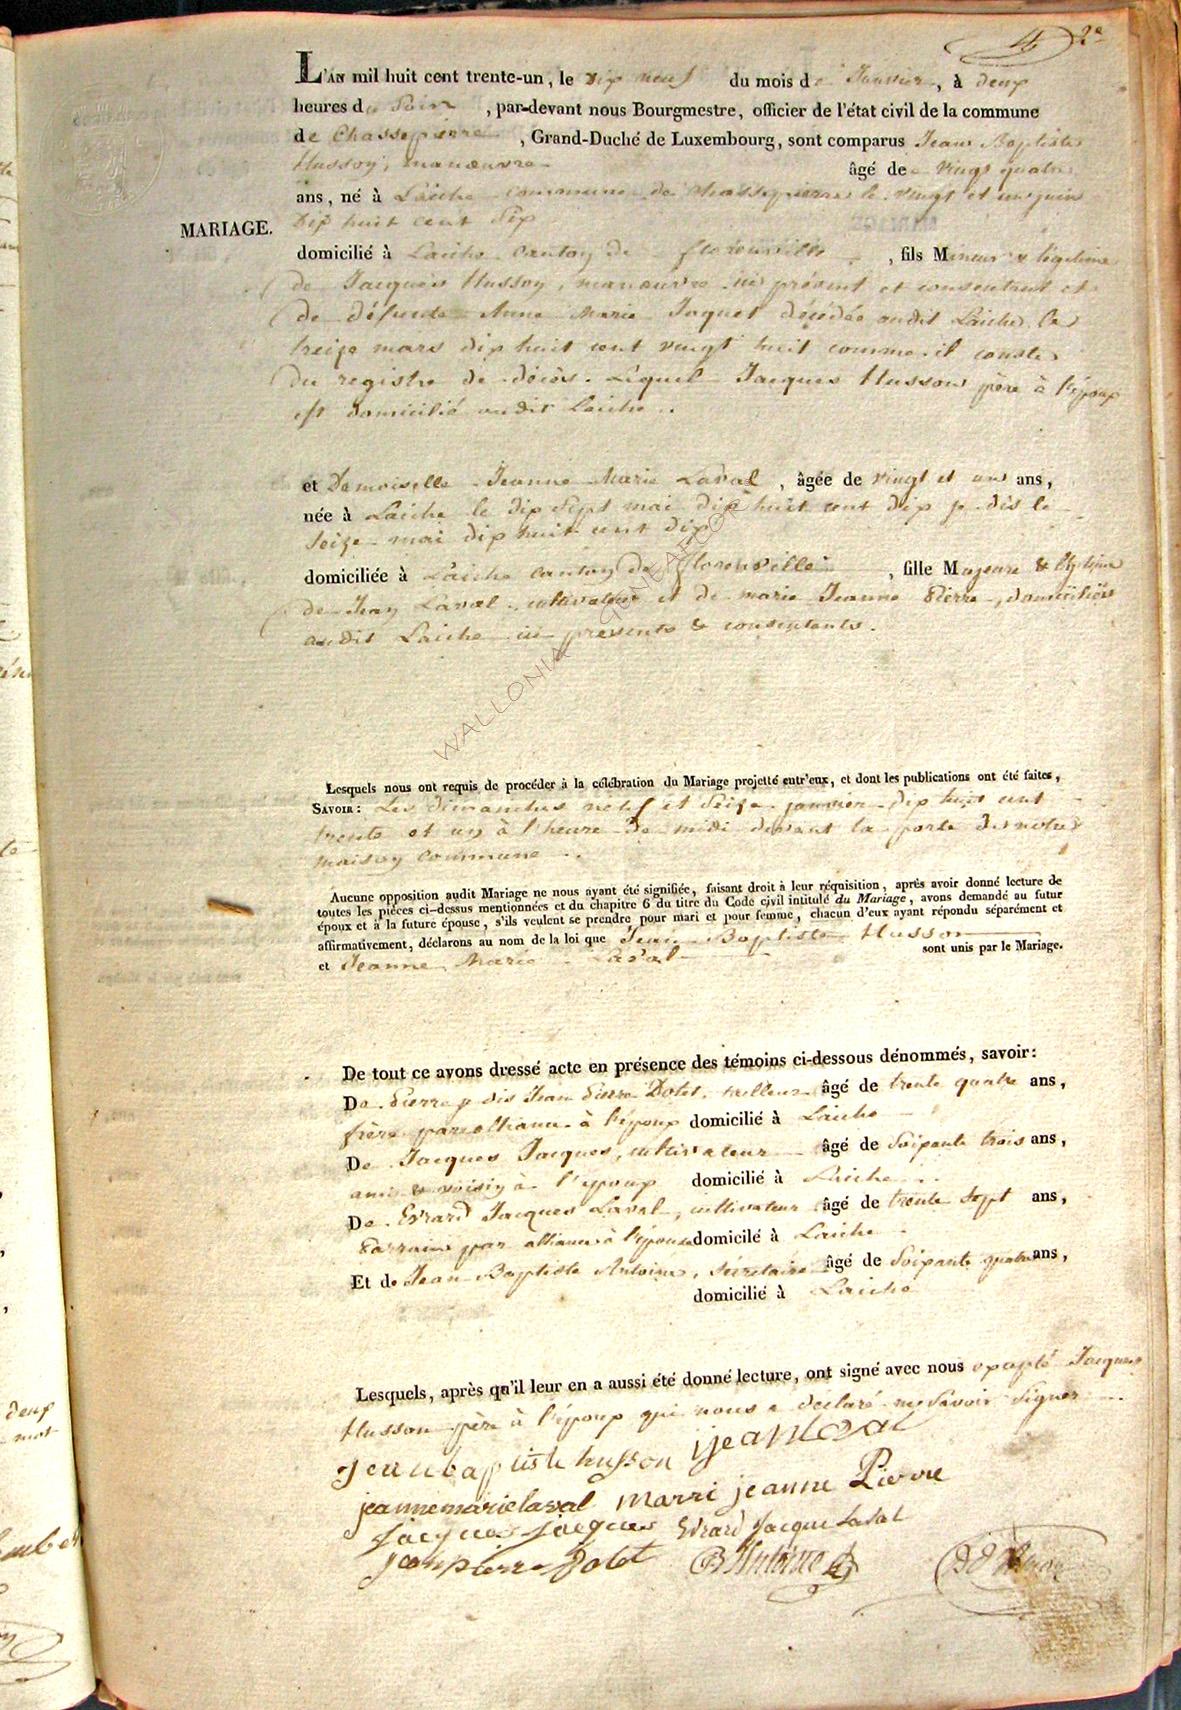 4 2e
L'AN mil huit cent trente-un, le dix neuf du mois de Janvier, à deux
heures du Soir, par-devant nous Bourgmestre, officier de l'état civil de la commune
de Chassepierre, Grand-Duché de Luxembourg, sont comparus Jean Baptiste
Husson, manœuvre âgé de vingt quatre
ans, né à Laiche commune de Chassepierre le vingt et un juin
Dix huit cent Six
MARIAGE.
domicilié à Laiche Canton de florenville, fils Mineur & légitime
de Jacques Husson, manœuvre ici présent et consentant et
de défunte Anne Marie Jaquet décédée audit Laiche le
treize mars dix huit cent vingt huit comme il conste
du registre de décès. Lequel Jacques Husson père à l'époux
est domicilié audit Laiche.
et Demoiselle Jeanne Marie Laval, âgée de vingt et un ans,
née à Laiche le dix Sept mai dix huit cent dix je dis le
Seize mai dix huit cent dix
domiciliée à Laiche canton de florenville, fille Majeure & légitime
de Jean Laval cultivateur et de marie Jeanne Pierre, domiciliés
audit Laiche ici présents & consentants.
WALLONIA GENEAECOR
Lesquels nous ont requis de procéder à la célébration du Mariage projetté entr'eux, et dont les publications ont été faites,
SAVOIR: Les dimanches neuf et Seize janvier dix huit cent
trente et un à l'heure de midi devant la porte de notre
maison commune.
Aucune opposition audit Mariage ne nous ayant été signifiée, faisant droit à leur réquisition, après avoir donné lecture de
toutes les pièces ci-dessus mentionnées et du chapitre 6 du titre du Code civil intitulé du Mariage, avons demandé au futur
époux et à la future épouse, s'ils veulent se prendre pour mari et pour femme, chacun d'eux ayant répondu séparément et
affirmativement, déclarons au nom de la loi que Jean Baptiste Husson
et Jeanne Marie Laval sont unis par le Mariage.
De tout ce avons dressé acte en présence des témoins ci-dessous dénommés, savoir:
De Pierre je dis Jean Pierre Dotet, tailleur âgé de trente quatre ans,
frère par alliance à l'époux domicilié à Laiche
De Jacques Jacques, cultivateur âgé de Soixante trois ans,
ami & voisin à l'époux domicilié à Laiche
De Evrard Jacques Laval, cultivateur âgé de trente Sept ans,
Parrain par alliance à l'épouse domicilé à Laiche
Et de Jean Baptiste Antoine, Secrétaire âgé de Soixante quatre ans,
domicilié à Laiche
Lesquels, après qu'il leur en a aussi été donné lecture, ont signé avec nous excepté Jacques
Husson père à l'époux qui nous a déclaré ne Savoir Signer
Jean baptiste husson jean laval
jeanne marie laval marri jeanne Pierre
jacques jacques Evrard Jacque Laval
jean pierre Dotet JB Antoine